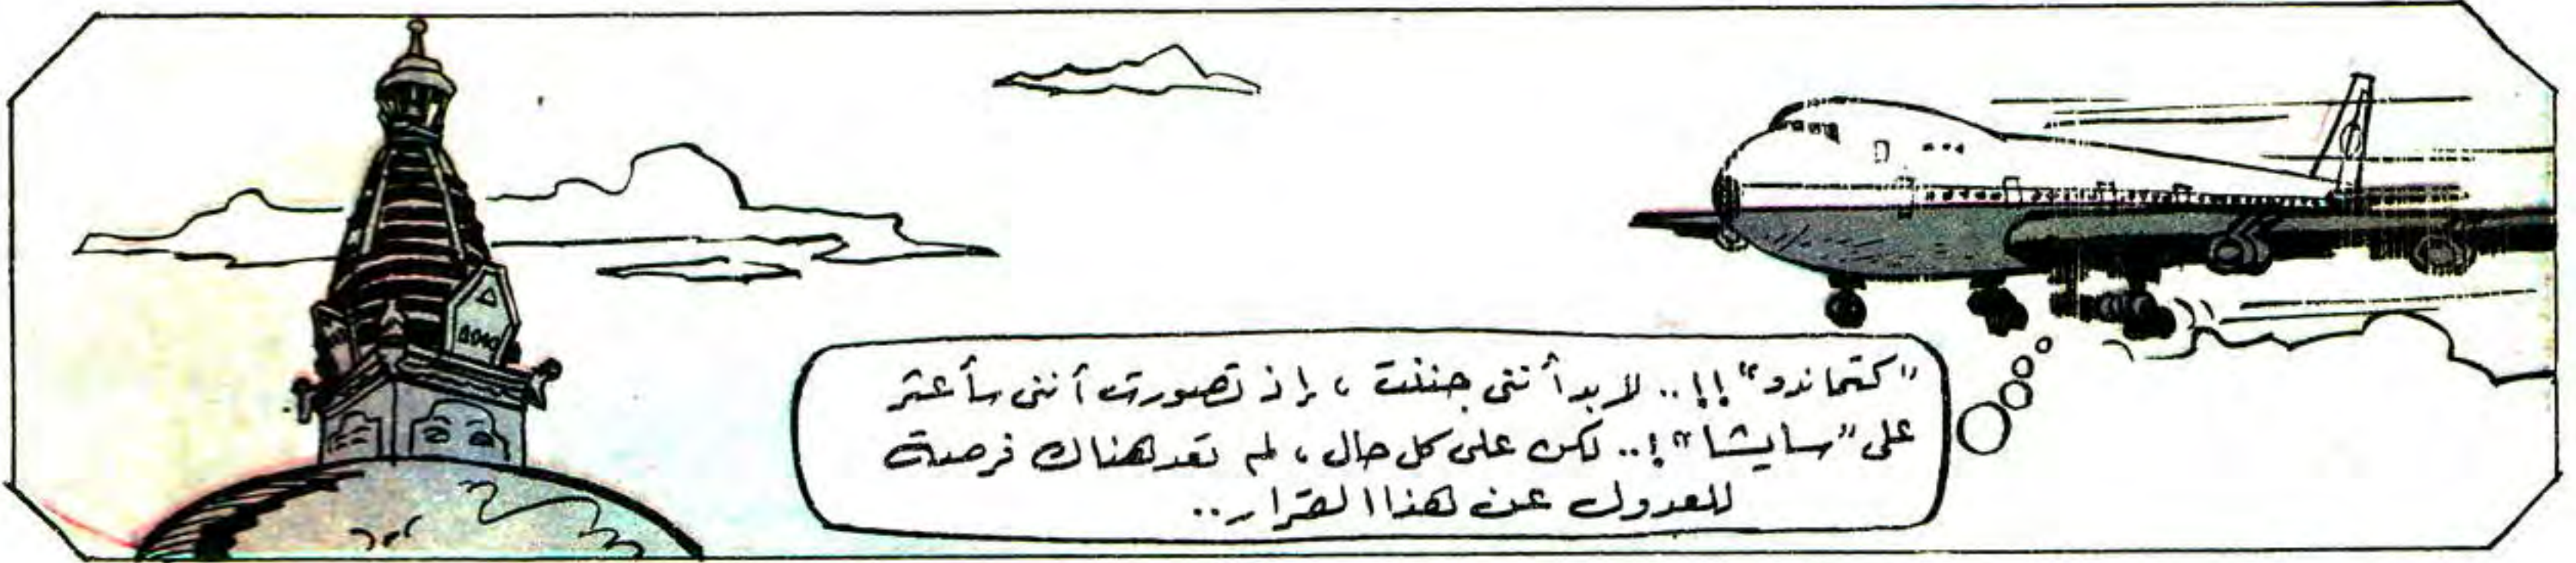 "كتماندو"!!.. لابد أننى جننت ، إذ تصورت أننى سأعثر
على "سايشا"!.. لكن على كل حال ، لم تعد هناك فرصة
للعدول عن هذا القرار..